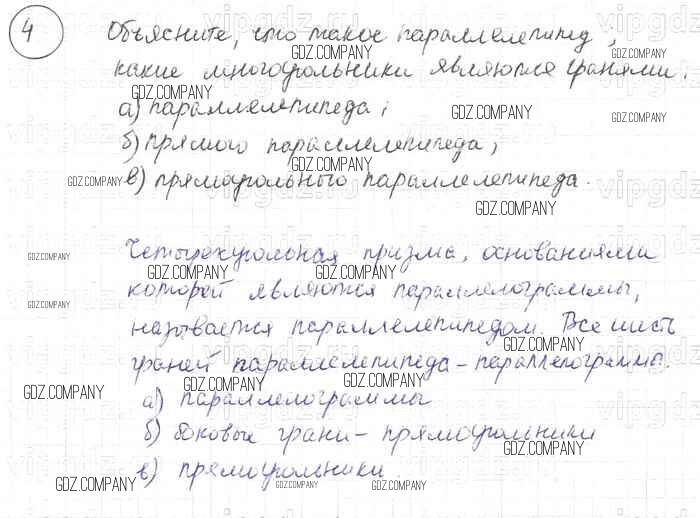 4
Объясните, что такое параллелепипед,
GDZ.COMPANY
какие многоугольники являются гранями:
GDZ.COMPANY
GDZ.COMPANY
а) параллелепипеда;
GDZ.COMPANY
GDZ.COMPANY
б) прямого параллелепипеда,
GDZ.COMPANY
GDZ.COMPANY в) прямоугольного параллелепипеда.
GDZ.COMPANY
Четырехугольная призма, основаниями
GDZ.COMPANY
GDZ.COMPANY GDZ.COMPANY
которой являются параллелограммы,
GDZ.COMPANY
называется параллелепипедом. Все шесть
GDZ.COMPANY
граней параллелепипеда – параллелограммы.
GDZ.COMPANY GDZ.COMPANY GDZ.COMPANY
а) параллелограммы
GDZ.COMPANY
б) боковые грани – прямоугольники
GDZ.COMPANY
в) прямоугольники.
GDZ.COMPANY GDZ.COMPANY GDZ.COMPANY